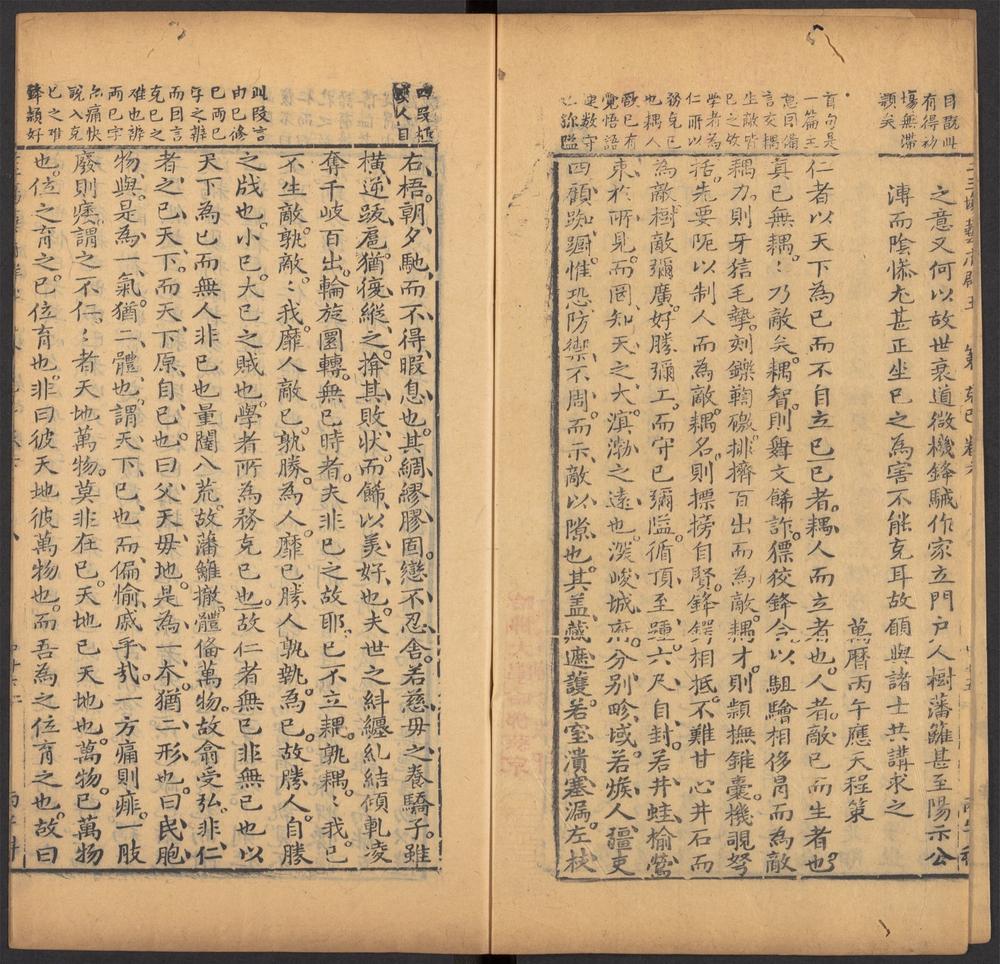 目既此
有得初
塲無滯
題矣
之意又何以故世衰道微機鋒駴作家立門戸人樹藩籬甚至陽示公
溥而陰懷尤甚正坐已之為害不能克耳故願與諸士共講求之
萬曆丙午應天程策
首句是
一篇主
意同俻
言交耦
生敵皆
已之故
學者為
仁所以
務克已
也耦人
敵已有
覺悟語
建数守
已弥隘
仁者以天下為已而不自立已已者耦人而立者也人者敵已而生者也
真已無耦〻乃敵矣耦智則舞文餙詐獧狡鋒令以駔驓相侈胥而為敵
耦力則牙狺毛摯刻鑠鞫礉排擠百出而為敵耦才則頴撫錐囊機覗弩
括先要阨以制人而為敵耦名則摽搒自賢鋒鍔相抵不難甘心井石而
為敵樹敵彌廣好勝彌工而守已彌隘循頂至踵六尺自封若井蛙榆鷽
束於所見而罔知天之大溟渤之遠也深峻城府分别畛域若嫉人疆吏
四顧踟躕惟恐防禦不周而示敵以隙也其盖蔵遮護若室潰塞漏左枝
四段極
人目
此段言
由已修
已两已
字之辨
而因言
克已之
难也辨
两已字
亦痛快
説入克
已之难
鋒頴好
右梧朝夕馳而不得暇息也其綢繆膠固戀不忍舍若慈母之養驕子雖
橫逆跋扈猶復縱之揜其敗状而餙以美好也夫世之糾纒紏結傾軋凌
奪千岐百出輪旋圜轉無已時者夫非已之故耶已不立耦孰耦〻我已
不生敵孰敵〻我靡人敵已孰勝為人靡已勝人孰執為已故勝人自勝
之戕也小已大已之賊也學者所為務克已也故仁者無已非無已也以
天下為已而無人非已也量闓八荒故藩籬撤體偹萬物故翕受弘非仁
者之已天下而天下原自已也曰父天母地是為一本猶二形也曰民胞
物與是為一氣猶二體也謂天下已也而偏愉戚乎㦲一方痛則痱一肢
廢則痿謂之不仁〻者天地萬物莫非在已天地已天地也萬物已萬物
也位之育之已位育也非曰彼天地彼萬物也而吾為之位育之也故曰